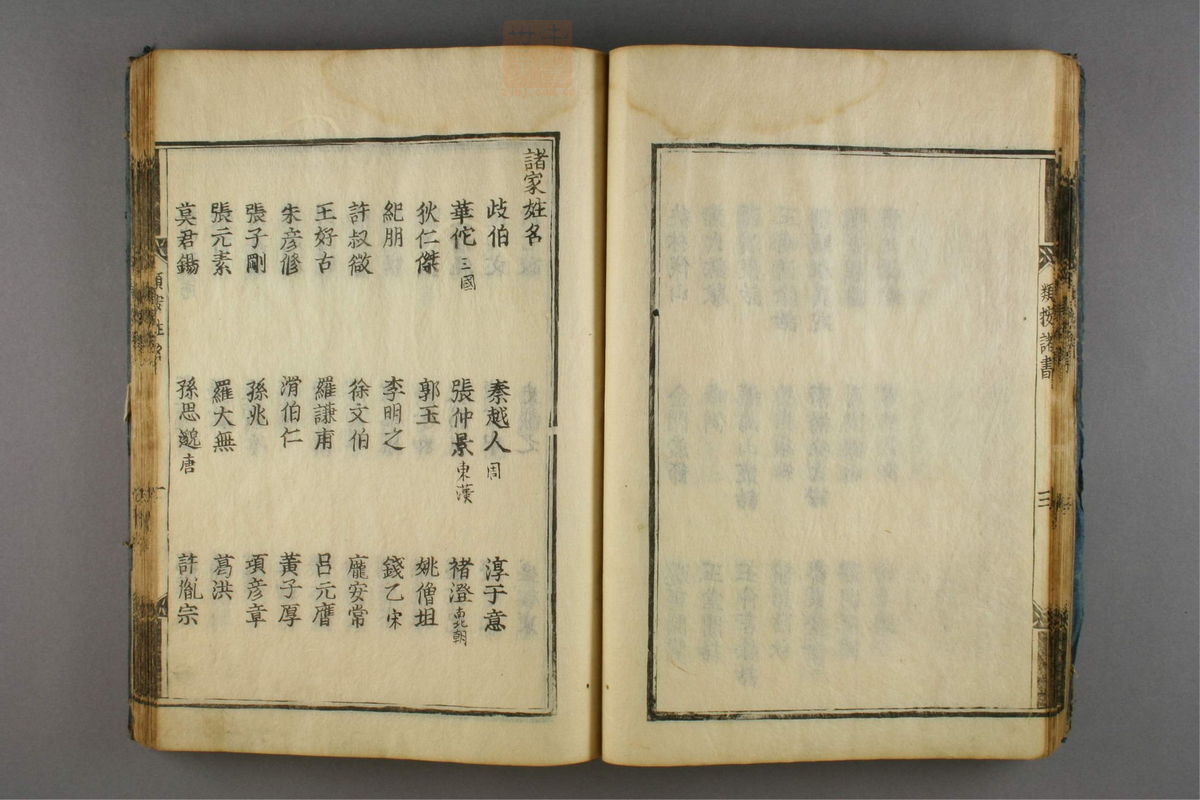 類按諸書
三
諸家姓名
歧伯 秦越人 周 淳于意
華佗 三國 張仲景 東漢 褚澄 南北朝
狄仁傑 郭玉 姚僧坦
紀朋 李明之 錢乙 宋
許叔微 徐文伯 龐安常
王好古 羅謙甫 呂元膺
朱彦修 滑伯仁 黃子厚
張子剛 孫兆 項彦章
張元素 羅大無 葛洪
莫君錫 孫思邈 唐 許胤宗
姓名
一